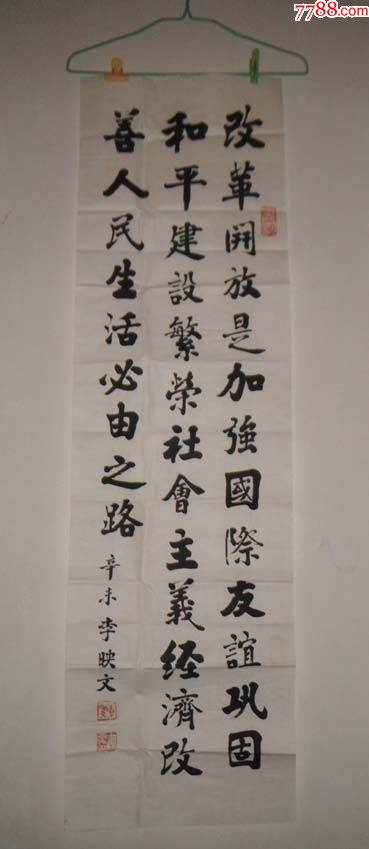 7788.com
改革開放是加強國際友誼巩固
和平建設繁榮社會主義经濟改
善人民生活必由之路
辛未李映文